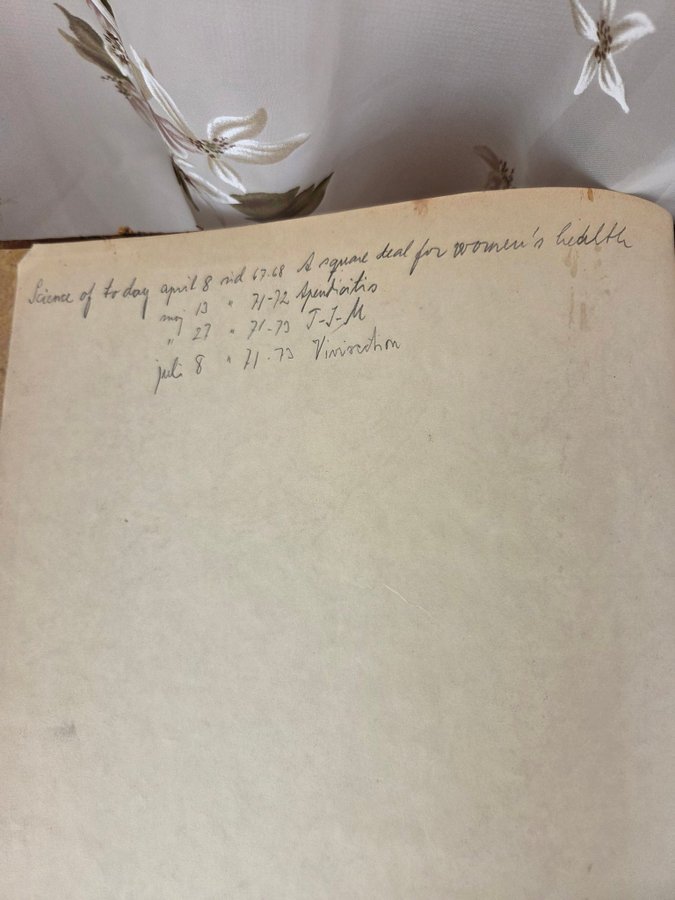 Science of to day april 8 sid 67-68 A square deal for women's health
maj 13 " 71-72 Apendicitis
" 27 " 71-73 T-J-M
juli 8 " 71-73 Vivisection